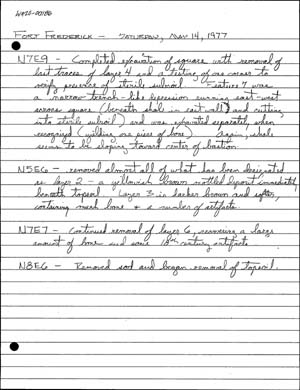 FORT FREDERICK — SATURDAY, MAY 14, 1977
N7E9 - Completed excavation of square with removal of
last traces of layer 4 and a testing of one corner to
verify presence of sterile subsoil. Feature 7 was
a narrow trench-like depression running east-west
across square (beneath shale in east wall) and cutting
into sterile subsoil) and was excavated separately when
recognized (yielding one piece of bone). Again, shale
seems to be sloping toward center of bastion.
N5E6 - removed almost all of what has been designated
as layer 2 - a yellowish brown mottled deposit immediately
beneath topsoil. Layer 3 is darker brown and softer,
containing much bone + a number of artifacts.
N7E7 - Continued removal of layer 6, recovering a large
amount of bone and some 18th century artifacts.
N8E6 - Removed sod and began removal of topsoil.